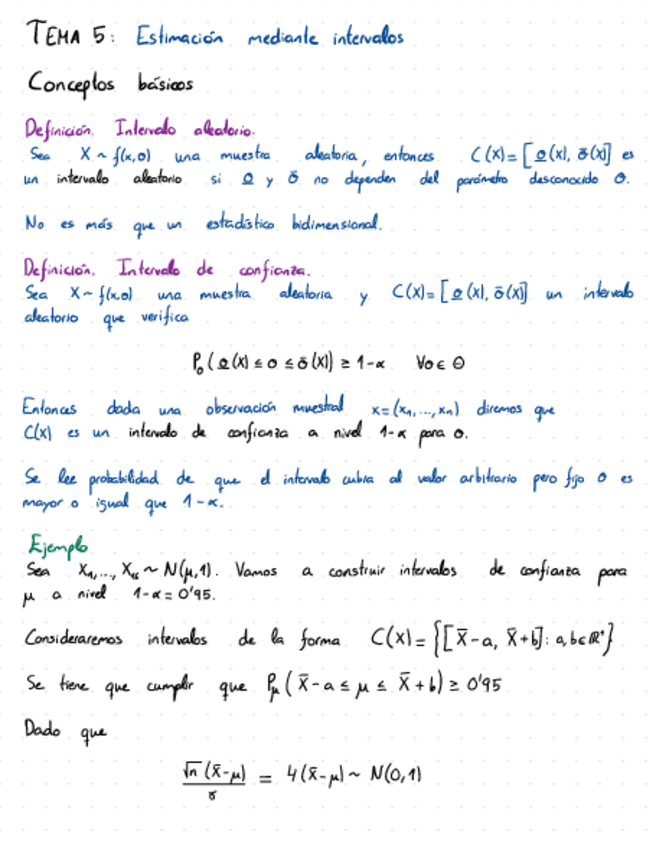 TEMA 5: Estimación mediante intervalos
Conceptos básicos
Definición. Intervalo aleatorio.
Sea X ~ f(x,θ) una muestra aleatoria, entonces C(X)=[θ̲(X), θ̄(X)] es
un intervalo aleatorio si θ̲ y θ̄ no dependen del parámetro desconocido θ.
No es más que un estadístico bidimensional.
Definición. Intervalo de confianza.
Sea X~f(x,θ) una muestra aleatoria y C(X)=[θ̲(X), θ̄(X)] un intervalo
aleatorio que verifica
P_θ(θ̲(X) ≤ θ ≤ θ̄(X)) ≥ 1-α ∀θ ∈ Θ
Entonces dada una observación muestral x=(x₁,...,xₙ) diremos que
C(x) es un intervalo de confianza a nivel 1-α para θ.
Se lee probabilidad de que el intervalo cubra al valor arbitrario pero fijo θ es
mayor o igual que 1-α.
Ejemplo
Sea X₁,..., X₁₆ ~ N(μ,1). Vamos a construir intervalos de confianza para
μ a nivel 1-α = 0'95.
Consideraremos intervalos de la forma C(X)={[X̄-a, X̄+b]: a,b∈ℝ⁺}
Se tiene que cumplir que P_μ(X̄-a ≤ μ ≤ X̄+b) ≥ 0'95
Dado que
√n (x̄-μ)/σ = 4(x̄-μ) ~ N(0,1)